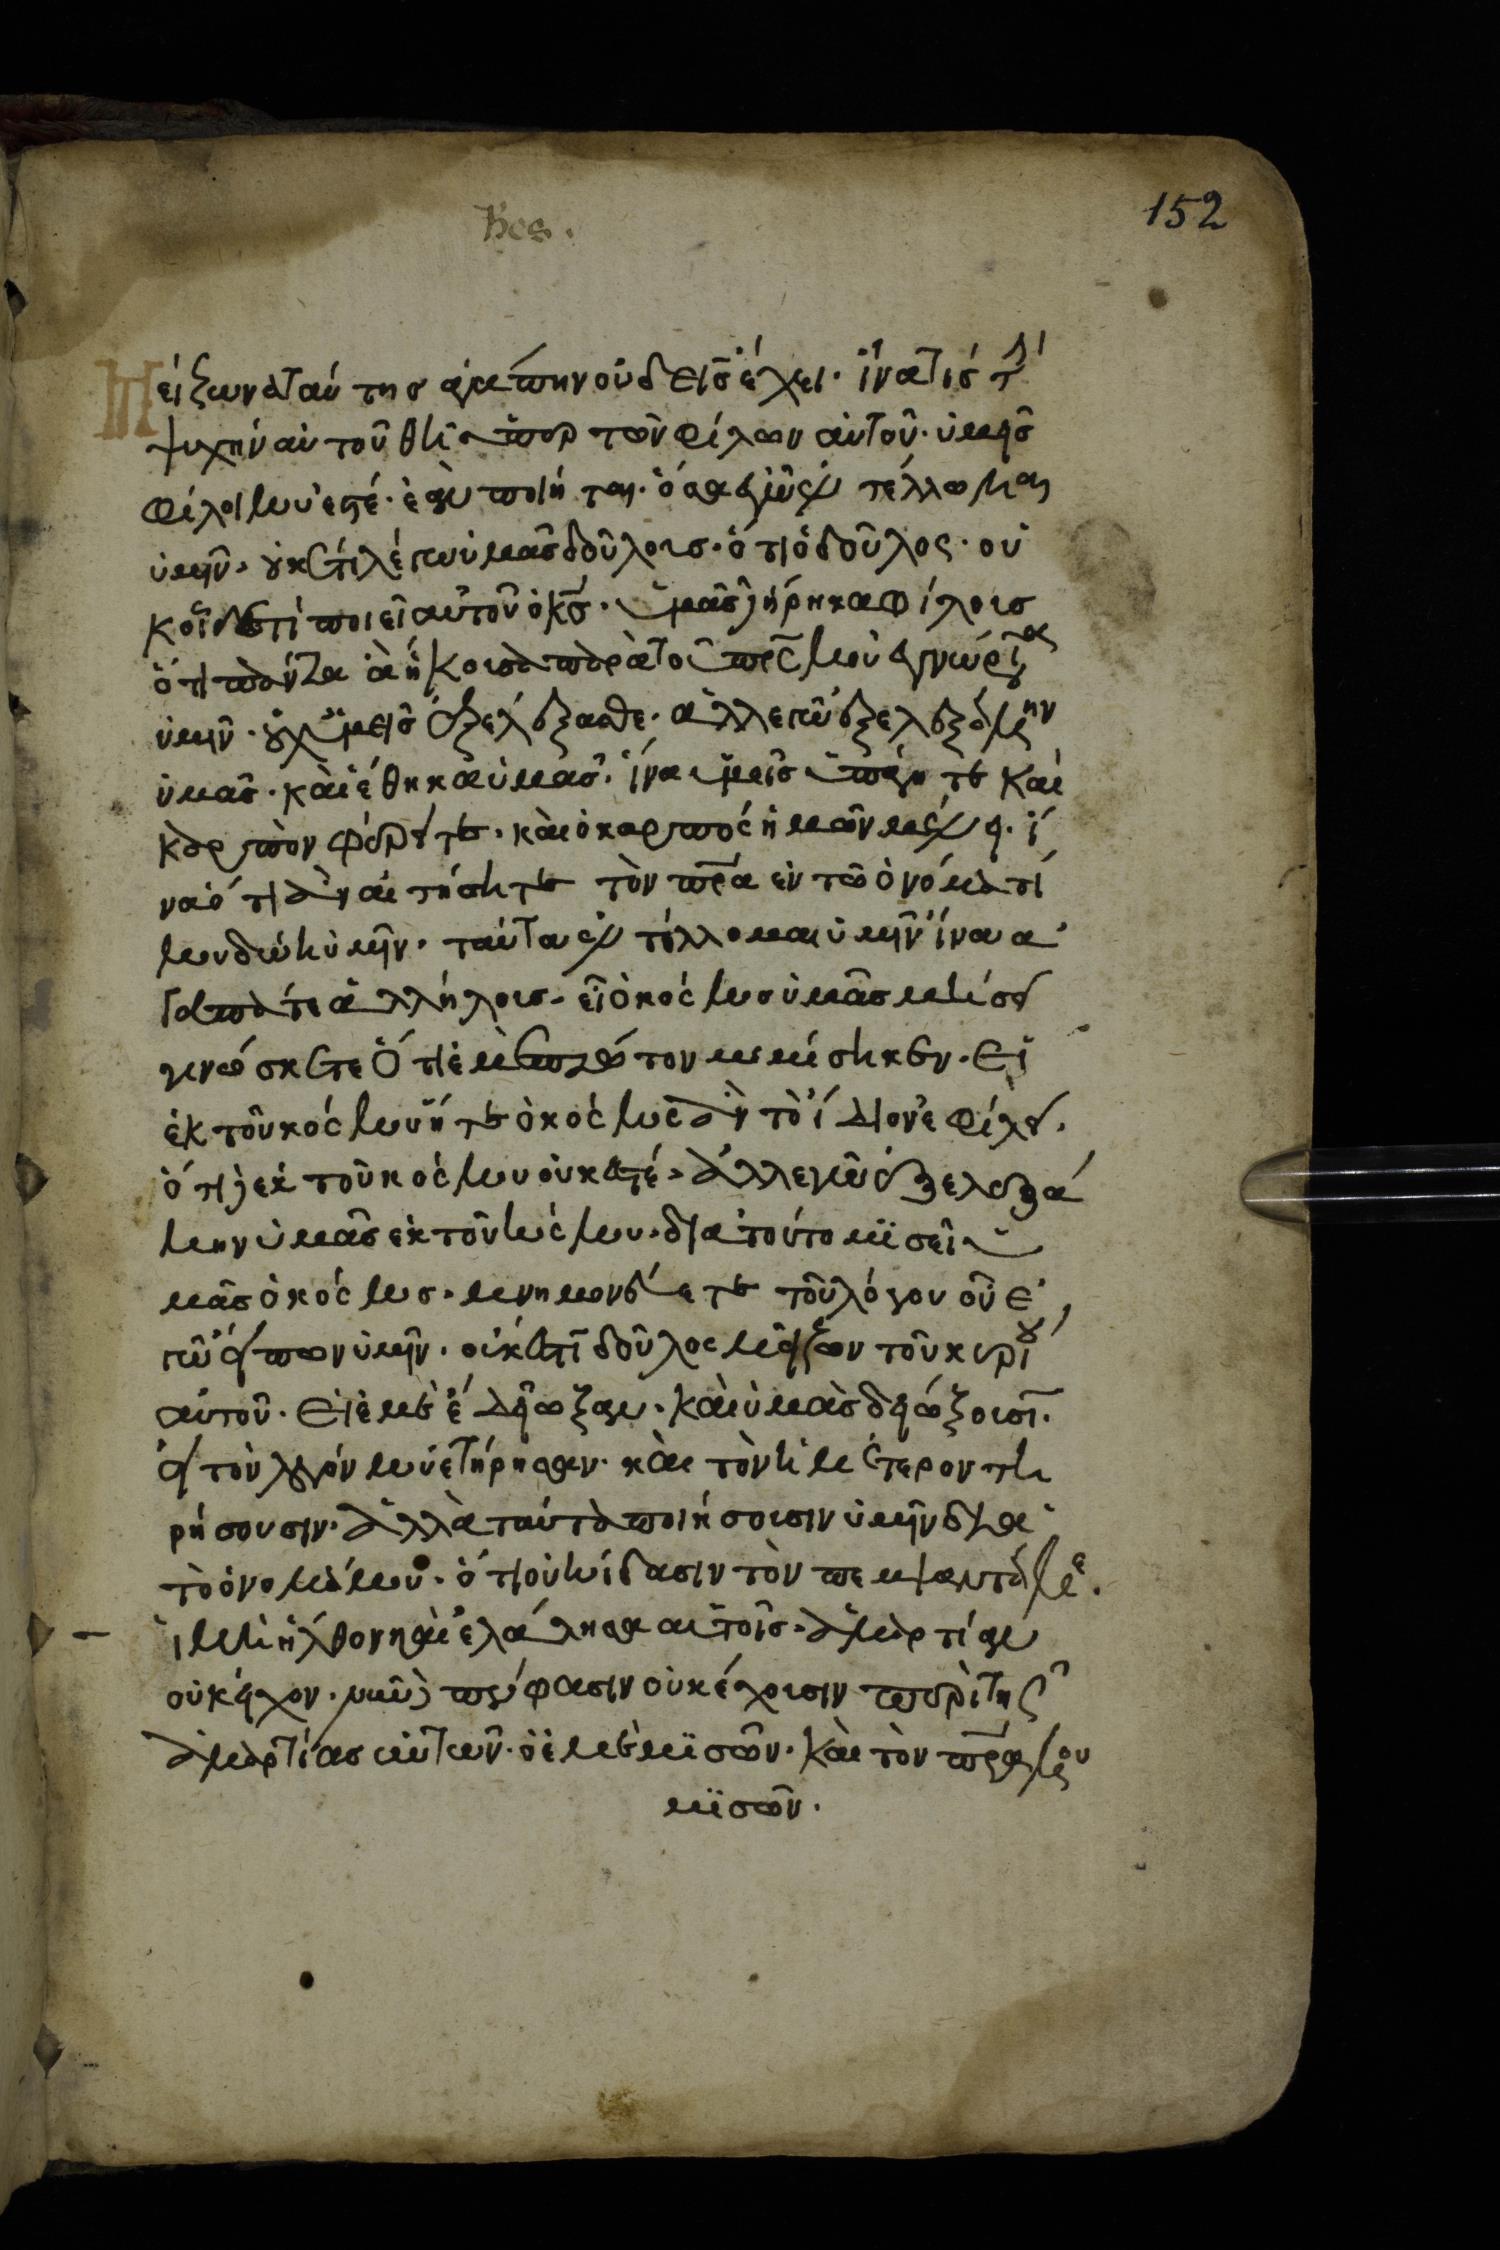 152
Μείζωνα ταύτης ἀγάπην οὐδεὶς ἔχει. ἵνα τίς τ(ὴν)
ψυχὴν αὐτοῦ θῆ ὑπὲρ τῶν φίλων αὐτοῦ. ὑμεῖς
φίλοι μου ἐστέ. ἐὰν ποιῆται. ὅσα ἐγὼ ἐντέλλωμαι
ὑμῖν. οὐκέτι λέγω ὑμᾶς δούλους. ὅτι ὁ δοῦλος. οὐ
κοῖδε τί ποιεῖ αὐτοῦ ὁ κ̅ς̅. ὑμᾶς εἴρηκα φίλους
ὅτι πάντα ἃ ἤκουσα παρὰ τοῦ π̅ρ̅ς̅ μου ἐγνώρισα
ὑμῖν. οὐχ ὑμεῖς ἐξελέξασθε. ἀλλ ἐγὼ ἐξελεξάμην
ὑμᾶς. καὶ ἔθηκα ὑμᾶς. ἵνα ὑμεῖς ὑπάγητε καὶ
καρπὸν φέρητε. καὶ ὁ καρπὸς ἡμῶν μένει. ἵ
να ὅ τι ἂν αἰτήσητε τὸν π̅ρ̅α̅ ἐν τῶ ὀνόματί
μου δώη ὑμῖν. ταῦτα ἐντέλλομαι ὑμῖν ἵνα ἀ
γαπᾶτε ἀλλήλους. εἰ ὁ κόσμος ὑμᾶς μισεῖ
γινώσκετε ὅτι ἐμὲ πρῶτον μεμίσηκεν. Εἰ
ἐκ τοῦ κόσμου ἦτε ὁ κόσμος ἂν τὸ ἴδιον ἐφίλει.
ὅτι δὲ ἐκ τοῦ κόσμου οὐκ ἐστέ. ἀλλ ἐγὼ ἐξελεξά
μην ὑμᾶς ἐκ τοῦ κόσμου. διὰ τοῦτο μισεῖ ὑ
μᾶς ὁ κόσμος. μνημονεύετε τοῦ λόγου οὗ ἐ
γὼ εἶπον ὑμῖν. οὐκ ἔστι δοῦλος μείζων τοῦ κυρίου
αὐτοῦ. Εἰ ἐμὲ ἐδίωξαν. καὶ ὑμᾶς διώξουσι.
εἰ τὸν λόγον μου ἐτήρησαν. καὶ τὸν ὑμέτερον τη
ρήσουσιν. ἀλλὰ ταῦτα ποιήσουσιν ὑμῖν διὰ
τὸ ὄνομά μου. ὅτι οὐκ οἴδασιν τὸν πέμψαντά με.
εἰ μὴ ἦλθον καὶ ἐλάλησα αὐτοῖς. ἁμαρτίαν
οὐκ εἶχον. νῦν δὲ πρόφασιν οὐκ ἔχουσιν περὶ τῆς
ἁμαρτίας αὐτῶν. ὁ ἐμὲ μισῶν. καὶ τὸν π̅ρ̅α̅ μου
μισῶν.